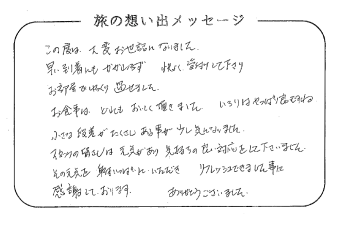 旅の想い出メッセージ
この度は、大変お世話になりました。
早い到着にもかかわらず 快く受付して下さり
お部屋でゆっくり過せました。
お食事は、とてもおいしく頂きました いろりはやっぱり良いですね
小さな段差がたくさんある事が少し気になりました。
スタッフの皆さんは元気があり 気持ちの良い対応をして下さいました。
その元気を いただき リフレッシュできました事に
感謝しております。 ありがとうございました。